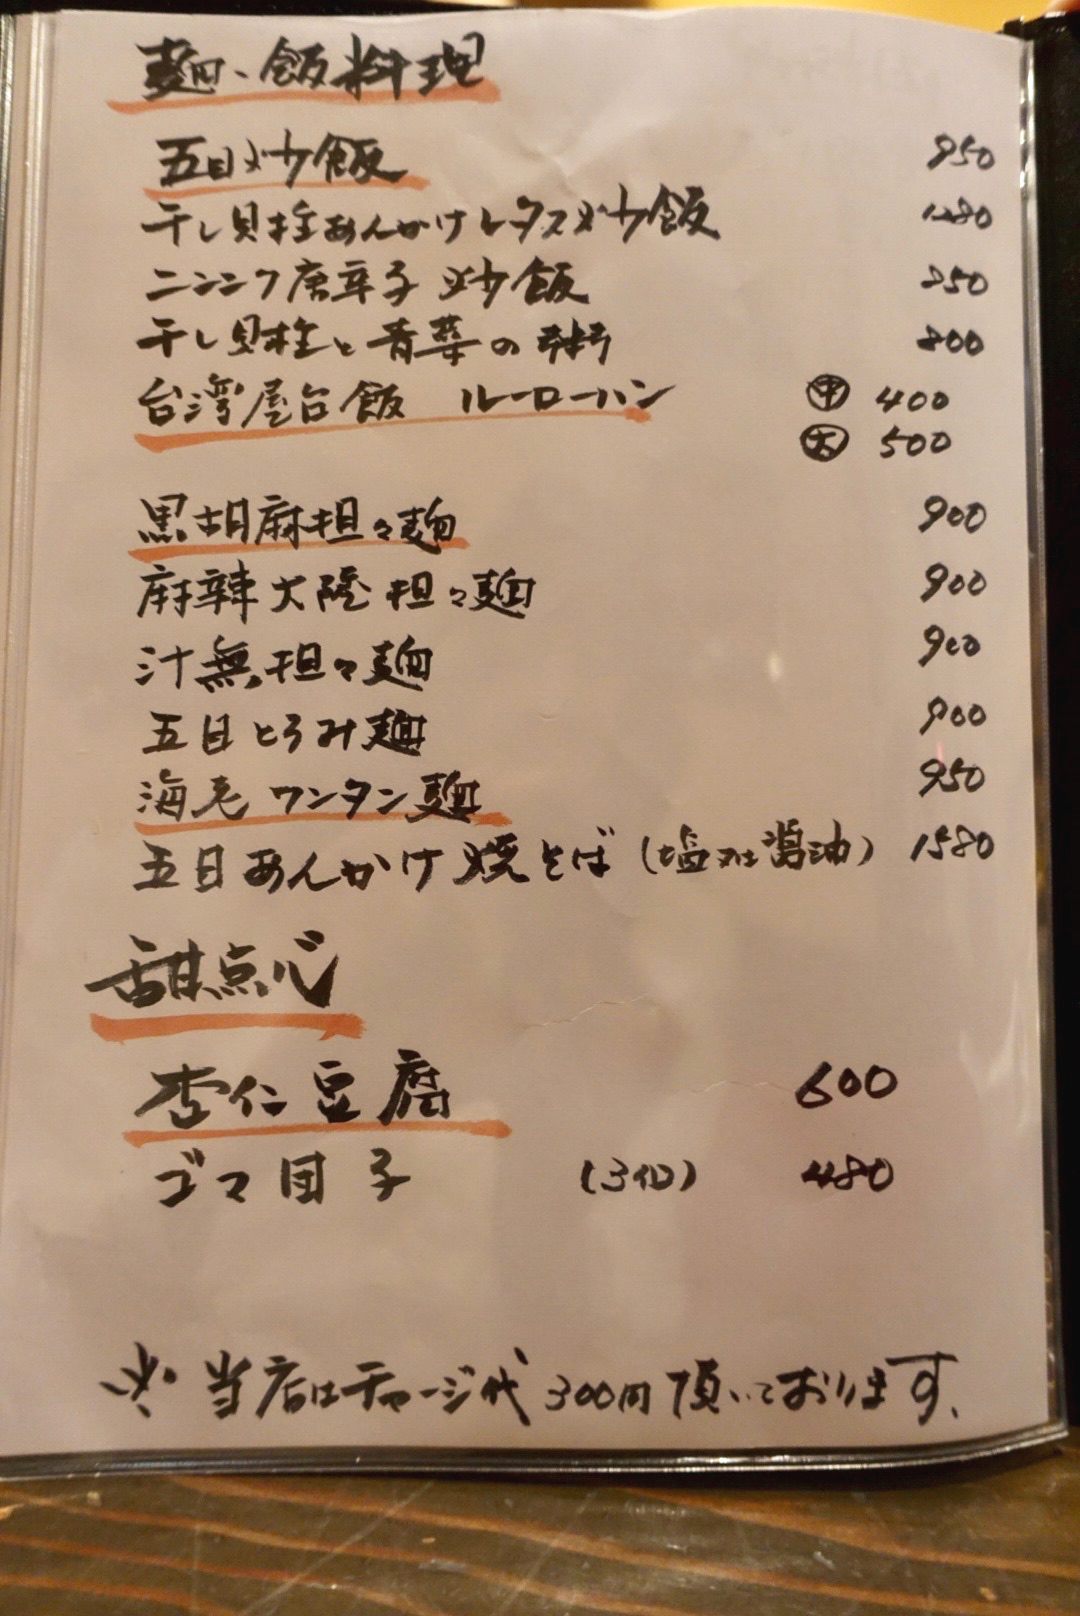 麺、飯料理
五目炒飯 850
干し貝柱あんかけレタス炒飯 1280
ニンニク唐辛子炒飯 850
干し貝柱と青菜の粥 800
台湾屋台飯 ルーローハン ㊥ 400
㊅ 500
黒胡麻担々麺 900
麻辣大陸担々麺 900
汁無担々麺 900
五目とろみ麺 900
海老ワンタン麺 950
五目あんかけ焼そば(塩又は醤油) 1580
甜点心
杏仁豆腐 600
ゴマ団子 (3個) 480
※当店はチャージ代300円頂いております。